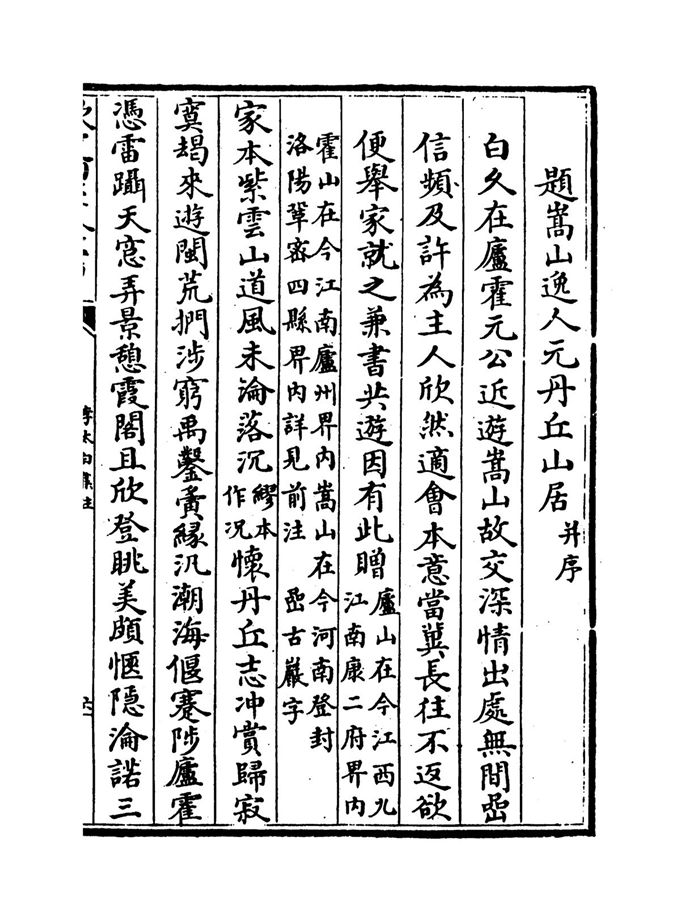 題嵩山逸人元丹丘山居 并序
白久在廬霍元公近遊嵩山故交深情出處無間嵒
信頻及許為主人欣然適會本意當冀長往不返欲
便舉家就之兼書共遊因有此贈 廬山在今江西九
江南康二府界内
霍山在今江南廬州界内嵩山在今河南登封
洛陽鞏密四縣界内詳見前注 嵒古巖字
家本紫雲山道風未淪落沉 繆本
作况 懷丹丘志冲賞歸寂
寞朅來遊閩荒捫涉窮禹鑿夤緣汎潮海偃蹇陟廬霍
憑雷躡天窓弄景憩霞閣且欣登眺美頗愜隠淪諾三
李太白集注